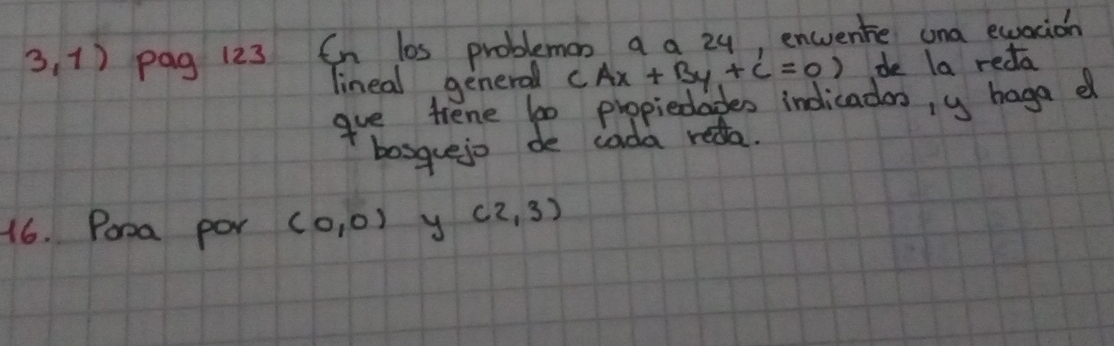 3,1) pag 123 En los problemas 9 a 24, encuentre una ecuación
lineal general (Ax + By + C = 0) de la recta
que tiene las propiedades indicadas, y haga el
bosquejo de cada recta.
16. Pasa por (0,0) y (2,3)